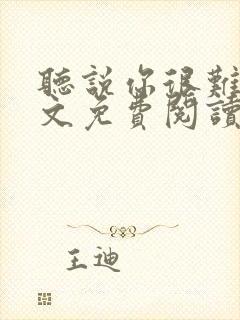 聽說你很難
文免費閱讀
王迪